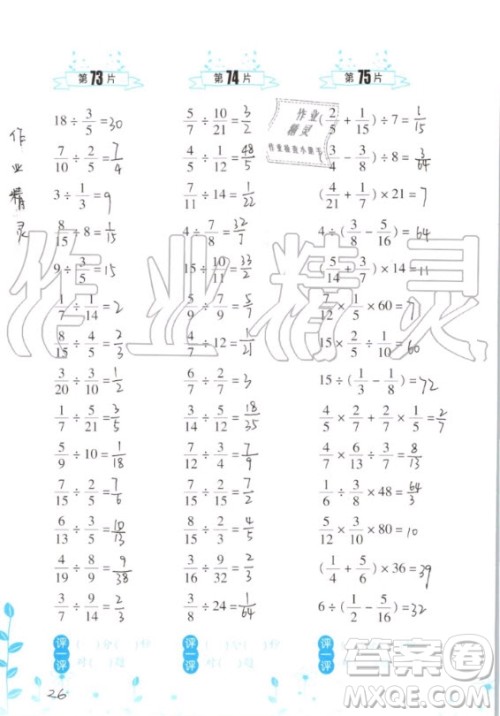 第73片
18 ÷ 3/5 = 30
7/10 ÷ 2/5 = 7/4
3 ÷ 1/3 = 9
8/15 ÷ 8 = 1/15
9 ÷ 3/5 = 15
1/7 ÷ 1/14 = 2
8/15 ÷ 4/5 = 2/3
3/20 ÷ 3/10 = 1/2
1/7 ÷ 5/21 = 3/5
5/9 ÷ 10 = 1/18
7/15 ÷ 2/5 = 7/6
6/13 ÷ 3/5 = 10/13
4/19 ÷ 8/9 = 9/38
3/7 ÷ 9/14 = 2/3
第74片
5/7 ÷ 10/21 = 3/2
12/7 ÷ 1/4 = 48/5
7/11 ÷ 14 = 1/22
4 ÷ 7/8 = 32/7
15 ÷ 10/11 = 33/2
5/9 ÷ 7/9 = 5/7
4/7 ÷ 12 = 1/21
6/7 ÷ 2/7 = 3
3/7 ÷ 5/6 = 18/35
7/12 ÷ 3/4 = 7/9
2/15 ÷ 2/9 = 3/5
8/15 ÷ 2/3 = 4/5
3/16 ÷ 9/32 = 2/3
3/8 ÷ 24 = 1/64
第75片
(2/5 + 1/15) ÷ 7 = 1/15
3/4 - 3/8) ÷ 8 = 3/64
(4/21 + 1/7) × 21 = 7
4 ÷ (3/8 - 5/16) = 64
(5/14 + 3/7) × 14 = 11
1/7 × 1/5 × 60 =
2/15 × 5/2 ÷ 1/10 = 60
15 ÷ (1/3 - 1/8) = 72
4/5 × 2/7 + 2/7 × 1/5 = 2/7
4/13 × 6/7 ÷ 3/7 = 8/13
1/6 ÷ 3/8 × 48 = 64/3
5/12 × 3/10 × 80 = 10
(1/4 + 5/6) × 36 = 39
6 ÷ (1/2 - 5/16) = 32
作业精灵
作业精灵
作业精灵
作业检查小帮手
评一评
评一评
26
答案圈
MXQE.COM